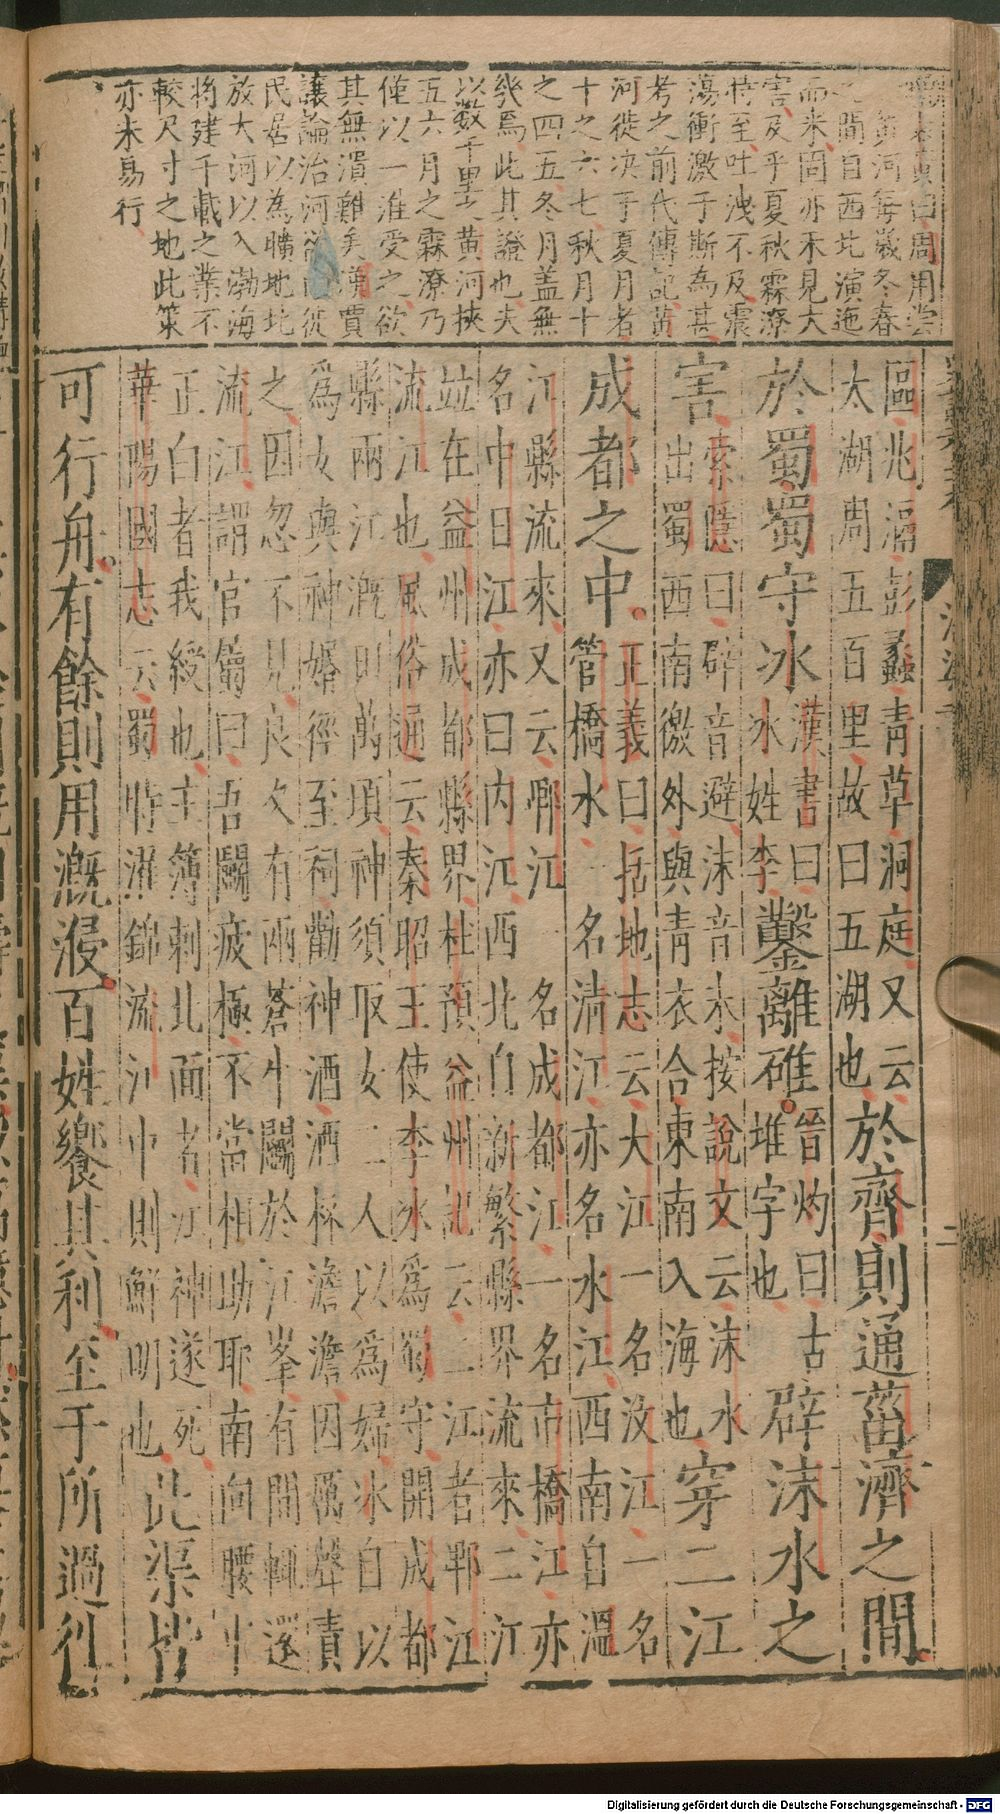 曰周用嘗
黃河每歲冬春
之間自西北演迤
而來固亦未見大
害及乎夏秋霖潦
時至吐洩不及震
蕩衝激于斯為甚
考之前代傳記黃
河徙决于夏月者
十之六七秋月十
之四五冬月蓋無
幾焉此其證也夫
以數千里之黃河挾
五六月之霖潦乃
僅以一淮受之欲
其無潰難矣漢賈
讓論治河欲徙
民居以為曠地北
放大河以入渤海
將建千載之業不
較尺寸之地此策
亦未易行
區兆滆彭蠡青草洞庭又云
太湖周五百里故曰五湖也
於齊則通菑濟之間
於蜀蜀守冰
漢書曰
冰姓李
鑿離碓
晉灼曰古
堆字也
辟沫水之
害
索隱曰辟音避沫音末按說文云沫水
出蜀西南徼外與青衣合東南入海也
穿二江
成都之中
正義曰括地志云大江一名汶江一名
管橋水一名清江亦名水江西南自溫
江縣流來又云郫江一名成都江一名市橋江亦
名中日江亦曰內江西北自新繁縣界流來二江
竝在益州成都縣界杜預益州記云二江者郫江
流江也風俗通云秦昭王使李冰爲蜀守開成都
縣兩江溉田萬頃神須取女二人以爲婦冰自以
爲女與神婚徑至祠勸神酒酒杯澹澹因厲聲責
之因忽不見良久有兩蒼牛鬭於江岸有間輒還
流江謂官屬曰吾鬭疲極不當相助耶南向腰中
正白者我綬也主簿刺北面者江神遂死
華陽國志云蜀時濯錦流江中則鮮明也
此渠皆
可行舟有餘則用溉浸百姓饗其利至于所過往
二
Digitalisierung gefördert durch die Deutsche Forschungsgemeinschaft - DFG